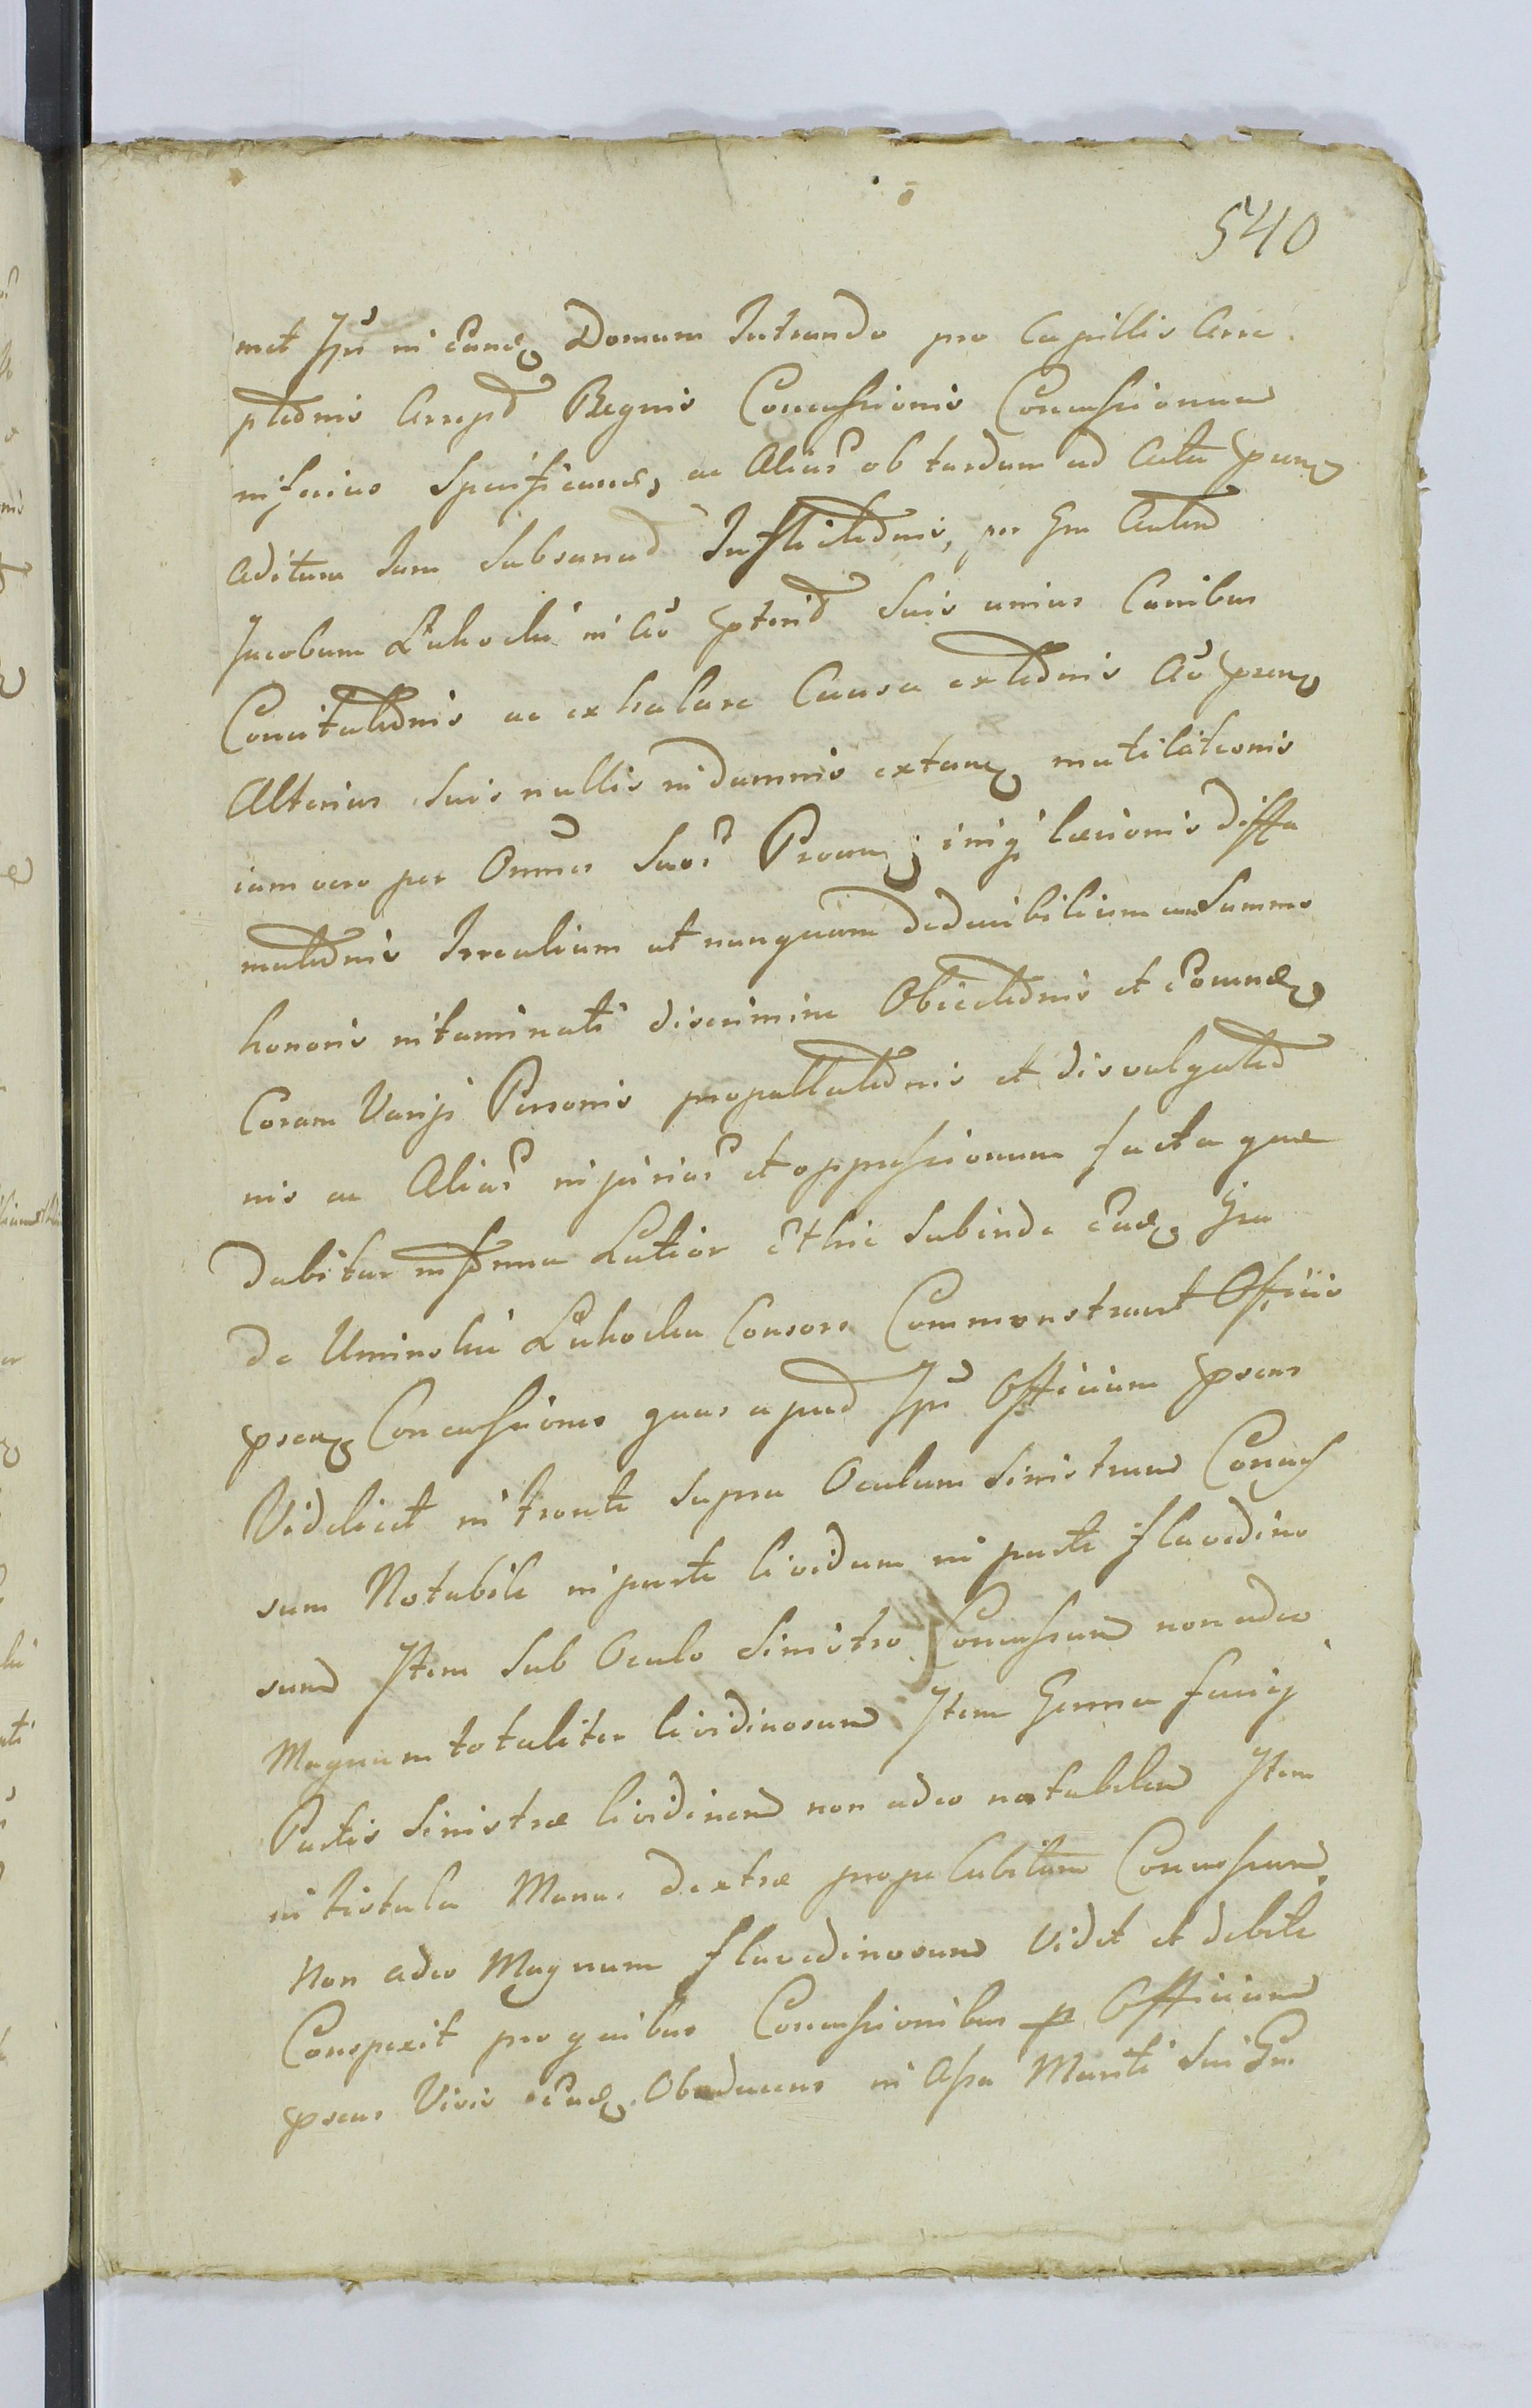 540
met Ipũ in Eand Domum Intrando pro Capillis Arre
ptednis Arrepd Regnis Concussionis Concussionum
inferius Specificand, ac Aliar ob tardum ad Acta pren
Aditum Jam Subsanad Inflictednis, per Gm Autem
Jacobum Łukocki in Ao pterid Suis unius Canibus
Concitatednis ac exhalare Causa extednis Ao pren
Alterius Suis nullis in damnis extan mutilationis
iam vero per Omnes Suos Procun iniq læsionis diffa
matednis Irrealium at nunquam deducibilium cum Summo
honoris intaminati discrimine Obiectednis et Eorund
Coram Varijs Personis propallatednis et disvulgated
nis ac Aliar injuriar et oppressionum facta quæ
dabitur in Forma Latior Et hic Subinde Ead Gsa
de Uminskie Łukocka Consors Commonstravit Officio
pren Concussiones quas apud Ipũ Officium prens
Videlicet in fronte Supra Oculum Sinistrum Concus
sum Notabile in parte lividum in parte flavedino
sum Item Sub Oculo Sinistro Concussum non adeo
Magnum totaliter lividinosum Item Genna faciej
Partis Sinistræ lividinem non adeo notabilem Item
in fistula Manus dextræ prope Cubitum Concussum
Non adeo Magnum flavedinosum Vidit et debite
Conspexit pro quibus Concussionibus p Officium
prens Visis Ead Obducens in Assa Mariti Sui Gn